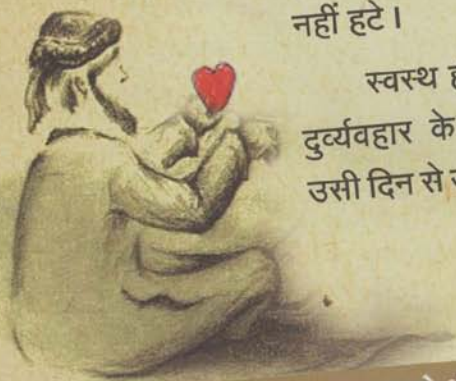 नहीं हटे।
स्वस्थ
दुर्व्यवहार के
उसी दिन से